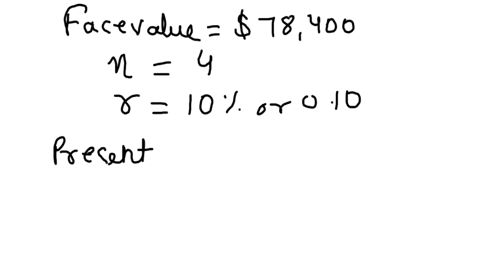 Facevalue = $78,400
n = 4
r = 10% or 0.10
Present